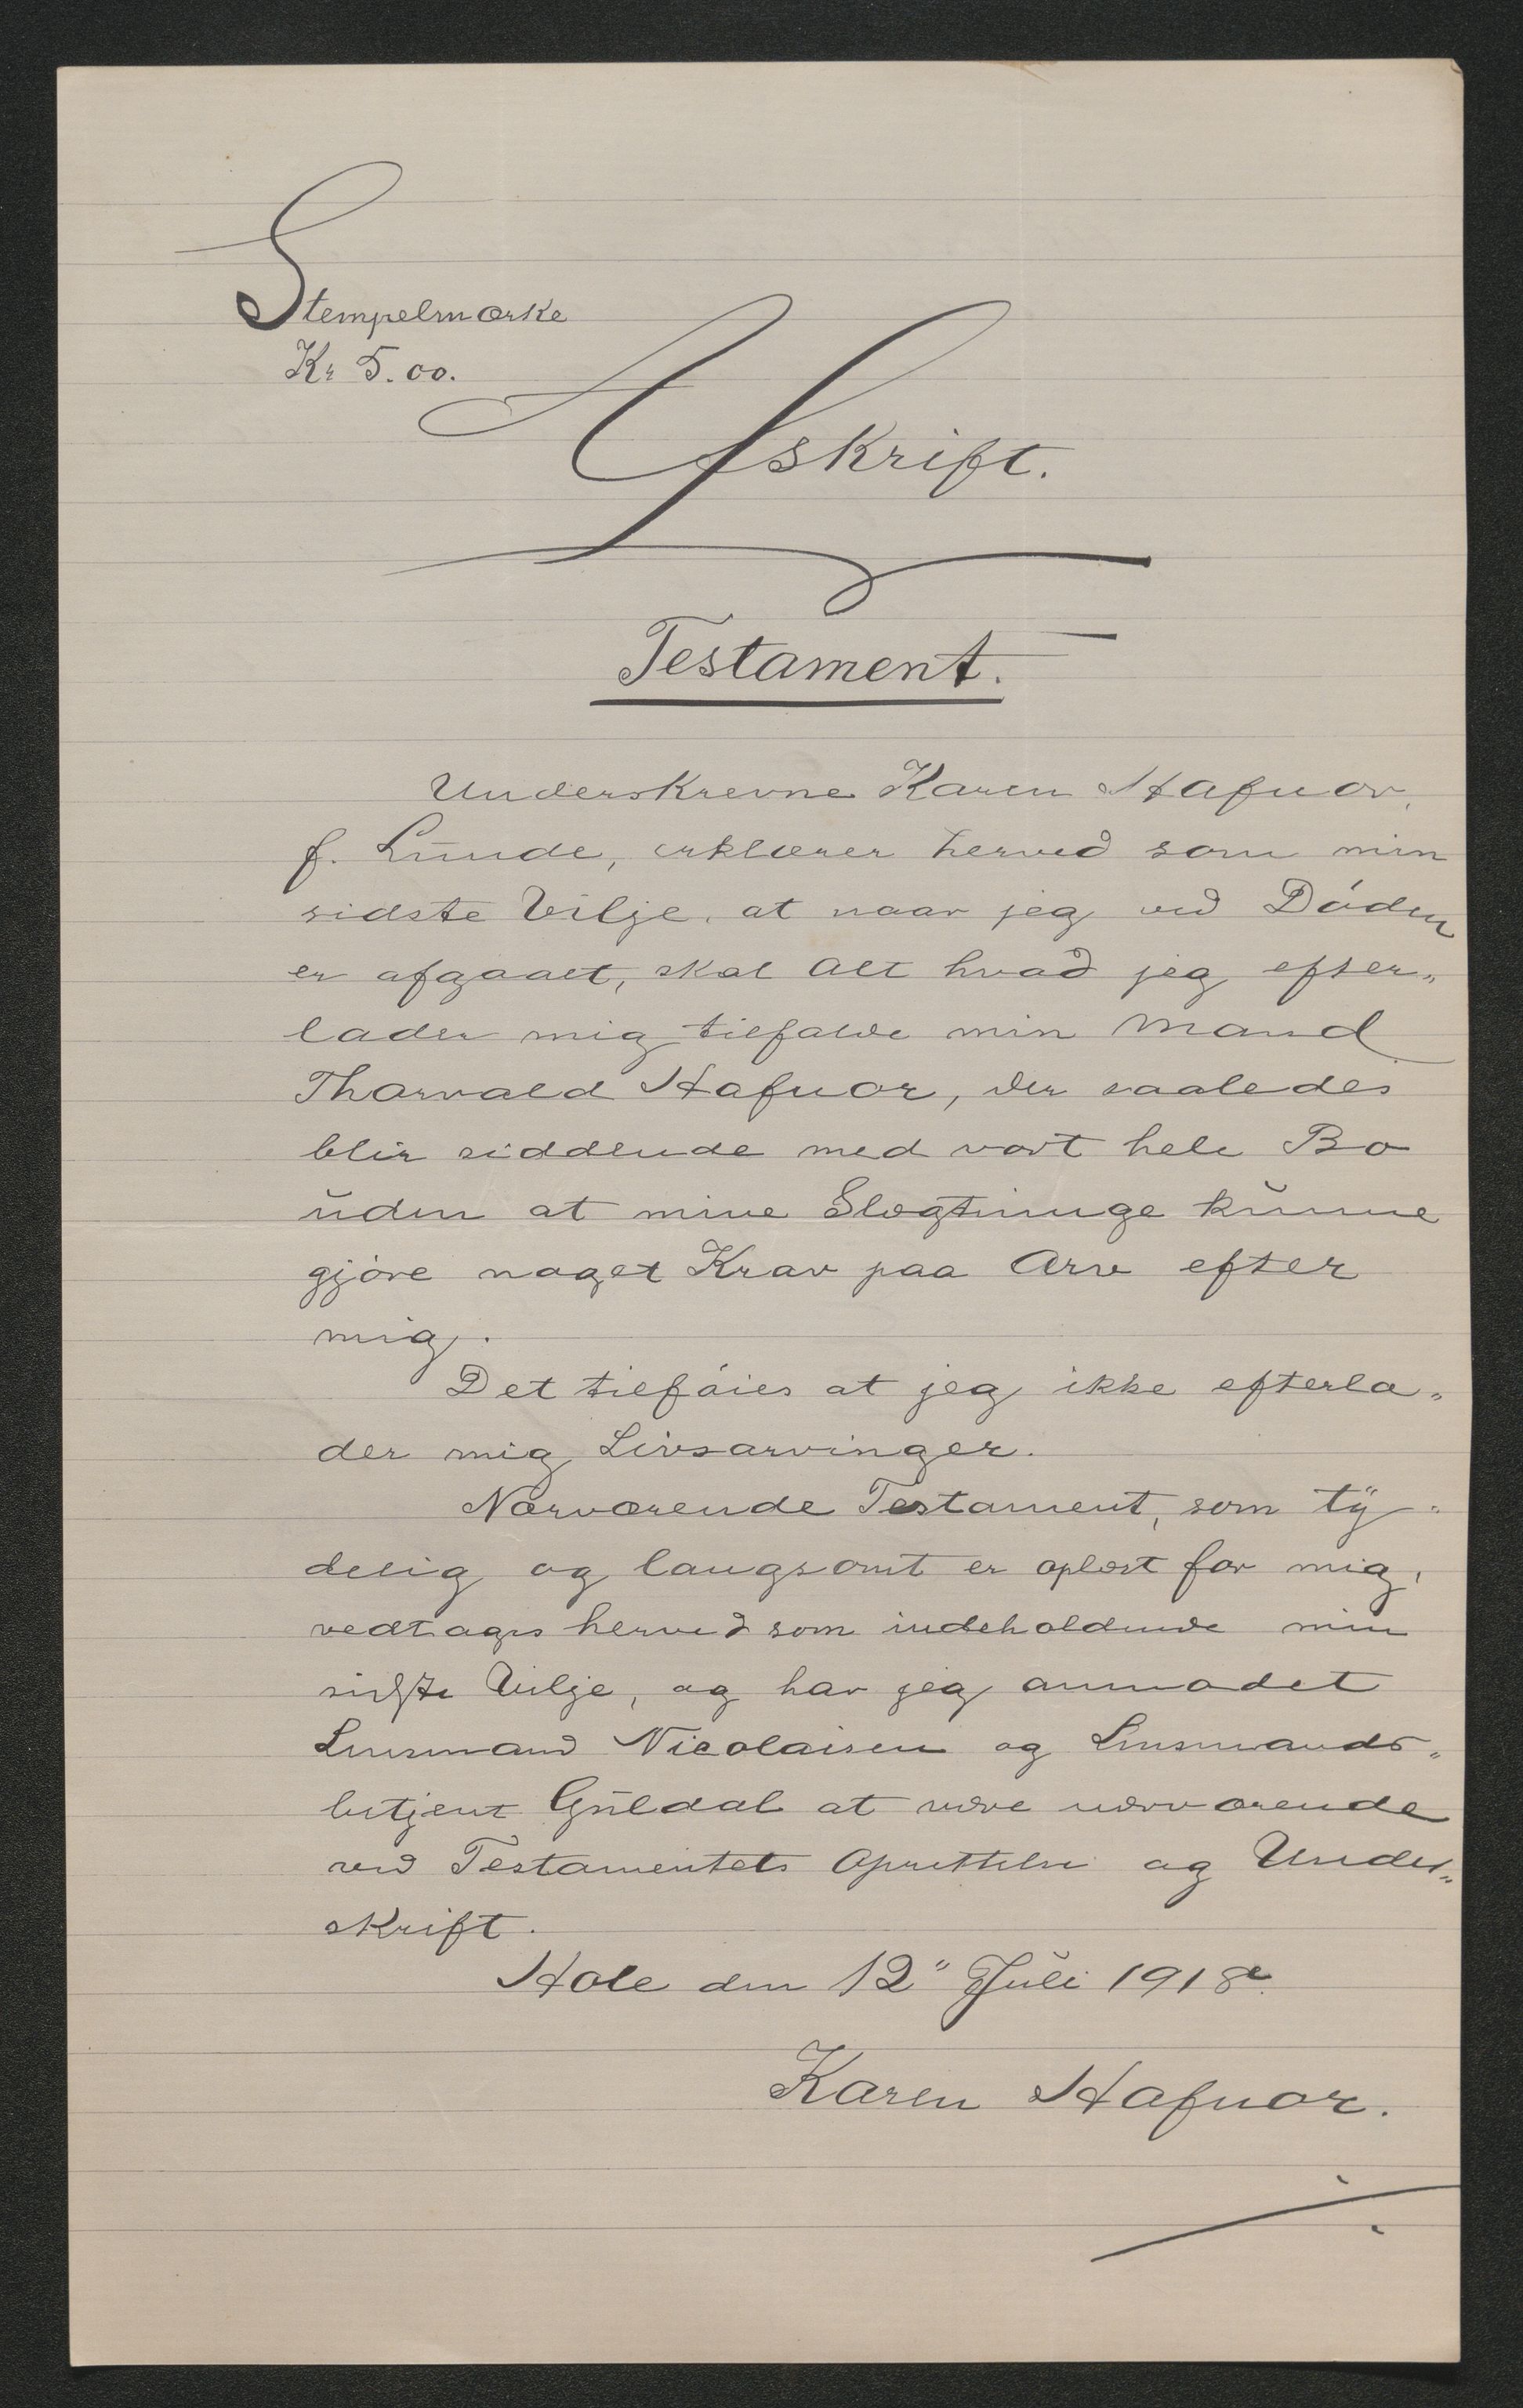 Stempelmærke
Kr 5.00.
Afskrift.
Testament.
Underskrevne Karen Hafnor,
f. Lunde, erklærer herved som min
sidste Vilje, at naar jeg ved Døden
er afgaaet, skal Alt hvad jeg efter„
lader mig tilfalde min Mand
Thorvald Hafnor, der saaledes
blir siddende med vort hele Bo
uden at mine Slægtninge kunne
gjøre noget Krav paa Arv efter
mig.
Det tilføies at jeg ikke efterla„
der mig Livsarvinger.
Nærværende Testament, som ty„
delig og langsomt er oplæst for mig,
vedtages herved som indeholdende min
sidste Vilje, og har jeg anmodet
Lensmand Nicolaisen og Lensmands„
betjent Guldal at være nærværende
ved Testamentets Oprettelse og Under„
skrift.
Hole den 12" Juli 1918.
Karen Hafnor.